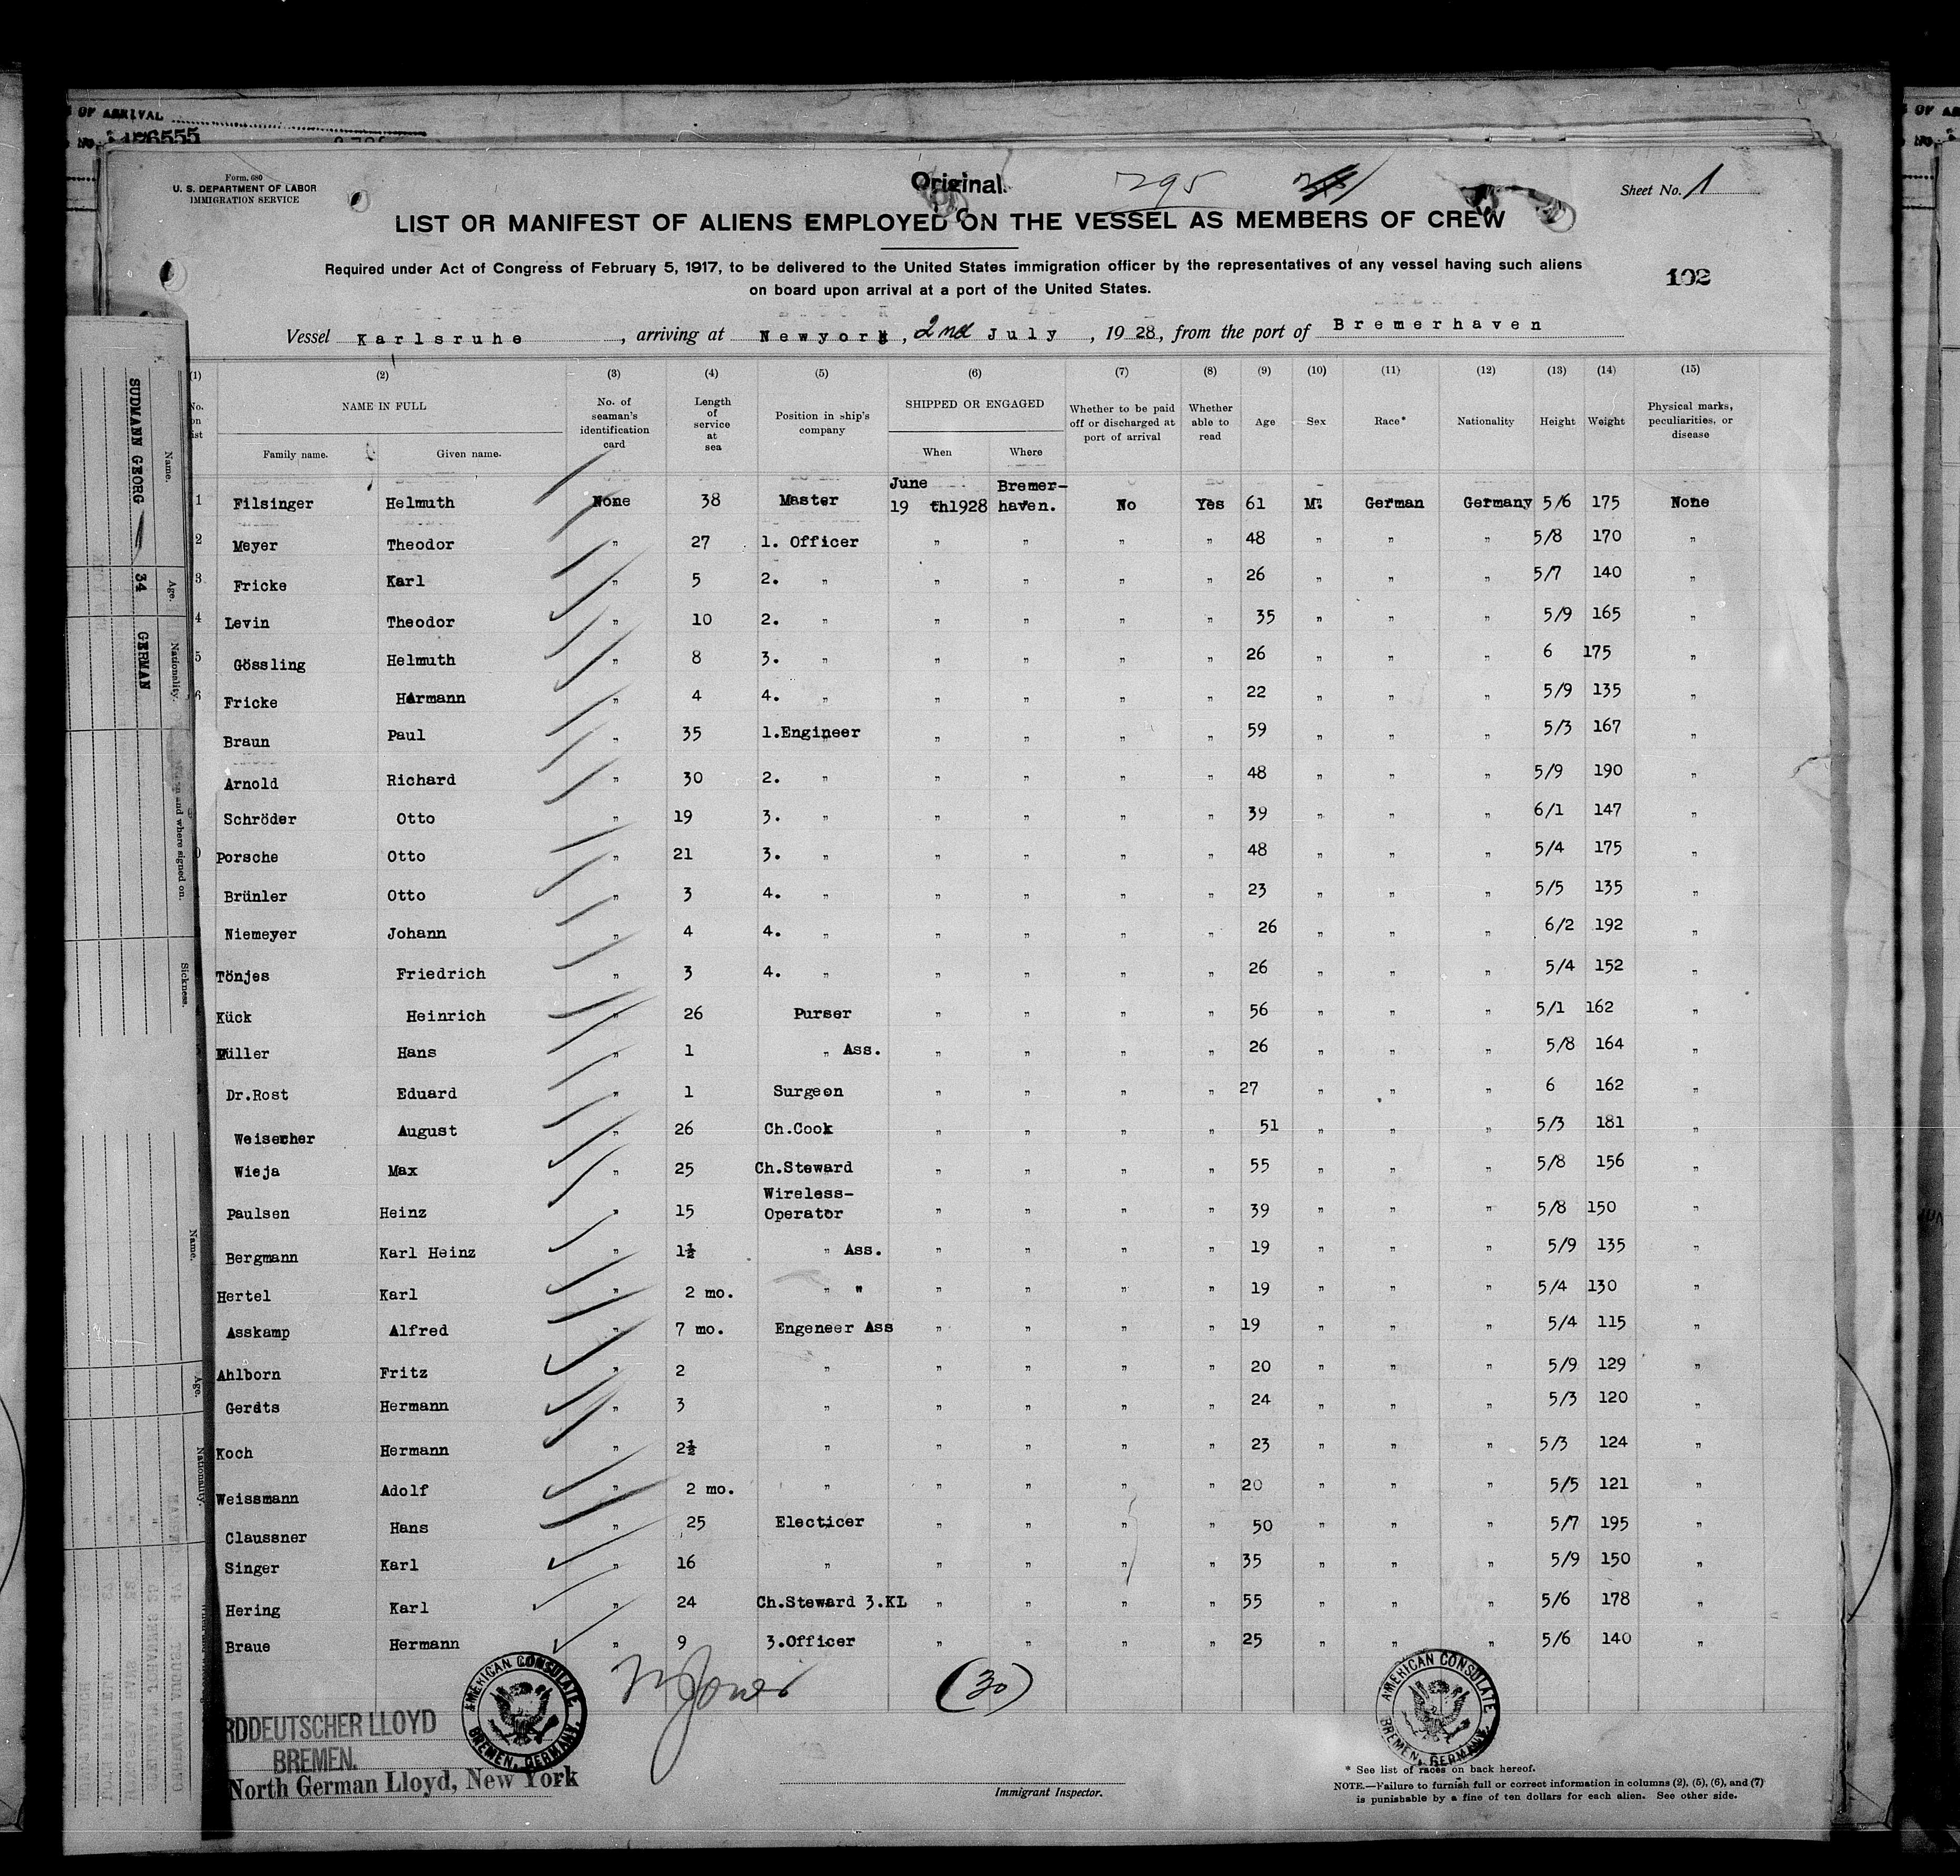 OF ARRIVAL
Form 680
U. S. DEPARTMENT OF LABOR
IMMIGRATION SERVICE
Original.
795
Sheet No. 1
LIST OR MANIFEST OF ALIENS EMPLOYED ON THE VESSEL AS MEMBERS OF CREW
Required under Act of Congress of February 5, 1917, to be delivered to the United States immigration officer by the representatives of any vessel having such aliens
on board upon arrival at a port of the United States.
102
Vessel Karlsruhe, arriving at Newyork, 2nd July, 1928, from the port of Bremerhaven
(1) (2) (3) (4) (5) (6) (7) (8) (9) (10) (11) (12) (13) (14) (15)
No. on list NAME IN FULL Family name. Given name. No. of seaman's identification card Length of service at sea Position in ship's company SHIPPED OR ENGAGED When Where Whether to be paid off or discharged at port of arrival Whether able to read Age Sex Race* Nationality Height Weight Physical marks, peculiarities, or disease
1 Filsinger Helmuth None 38 Master June 19 th1928 Bremer-haven. No Yes 61 M. German Germany 5/6 175 None
2 Meyer Theodor " 27 1. Officer " " " " 48 " " " 5/8 170 "
3 Fricke Karl " 5 2. " " " " " 26 " " " 5/7 140 "
4 Levin Theodor " 10 2. " " " " " 35 " " " 5/9 165 "
5 Gössling Helmuth " 8 3. " " " " " 26 " " " 6 175 "
6 Fricke Hermann " 4 4. " " " " " 22 " " " 5/9 135 "
Braun Paul " 35 1.Engineer " " " " 59 " " " 5/3 167 "
Arnold Richard " 30 2. " " " " " 48 " " " 5/9 190 "
Schröder Otto " 19 3. " " " " " 39 " " " 6/1 147 "
Porsche Otto " 21 3. " " " " " 48 " " " 5/4 175 "
Brünler Otto " 3 4. " " " " " 23 " " " 5/5 135 "
Niemeyer Johann " 4 4. " " " " " 26 " " " 6/2 192 "
Tönjes Friedrich " 3 4. " " " " " 26 " " " 5/4 152 "
Kück Heinrich " 26 Purser " " " " 56 " " " 5/1 162 "
Müller Hans " 1 " Ass. " " " " 26 " " " 5/8 164 "
Dr.Rost Eduard " 1 Surgeon " " " " 27 " " " 6 162 "
August " 26 Ch.Cook " " " " 51 " " " 5/3 181 "
Wieja Max " 25 Ch.Steward " " " " 55 " " " 5/8 156 "
Paulsen Heinz " 15 Wireless-Operator " " " " 39 " " " 5/8 150 "
Bergmann Karl Heinz " 1½ " Ass. " " " " 19 " " " 5/9 135 "
Hertel Karl " 2 mo. " " " " " " 19 " " " 5/4 130 "
Asskamp Alfred " 7 mo. Engeneer Ass " " " " 19 " " " 5/4 115 "
Ahlborn Fritz " 2 " " " " " 20 " " " 5/9 129 "
Gerdts Hermann " 3 " " " " " 24 " " " 5/3 120 "
Koch Hermann " 2½ " " " " " 23 " " " 5/3 124 "
Weissmann Adolf " 2 mo. " " " " " 20 " " " 5/5 121 "
Claussner Hans " 25 Electicer " " " " 50 " " " 5/7 195 "
Singer Karl " 16 " " " " " 35 " " " 5/9 150 "
Hering Karl " 24 Ch.Steward 3.KL " " " " 55 " " " 5/6 178 "
Braue Hermann " 9 3.Officer " " " " 25 " " " 5/6 140 "
(30)
AMERICAN CONSULATE BREMEN, GERMANY.
AMERICAN CONSULATE BREMEN, GERMANY.
RDDEUTSCHER LLOYD
BREMEN.
North German Lloyd, New York
Immigrant Inspector.
* See list of races on back hereof.
NOTE.—Failure to furnish full or correct information in columns (2), (5), (6), and (7)
is punishable by a fine of ten dollars for each alien. See other side.
Name. SUDMANN GEORG
Age. 34
Nationality. GERMAN
When and where signed on.
Sickness.
Name.
Age.
Nationality.